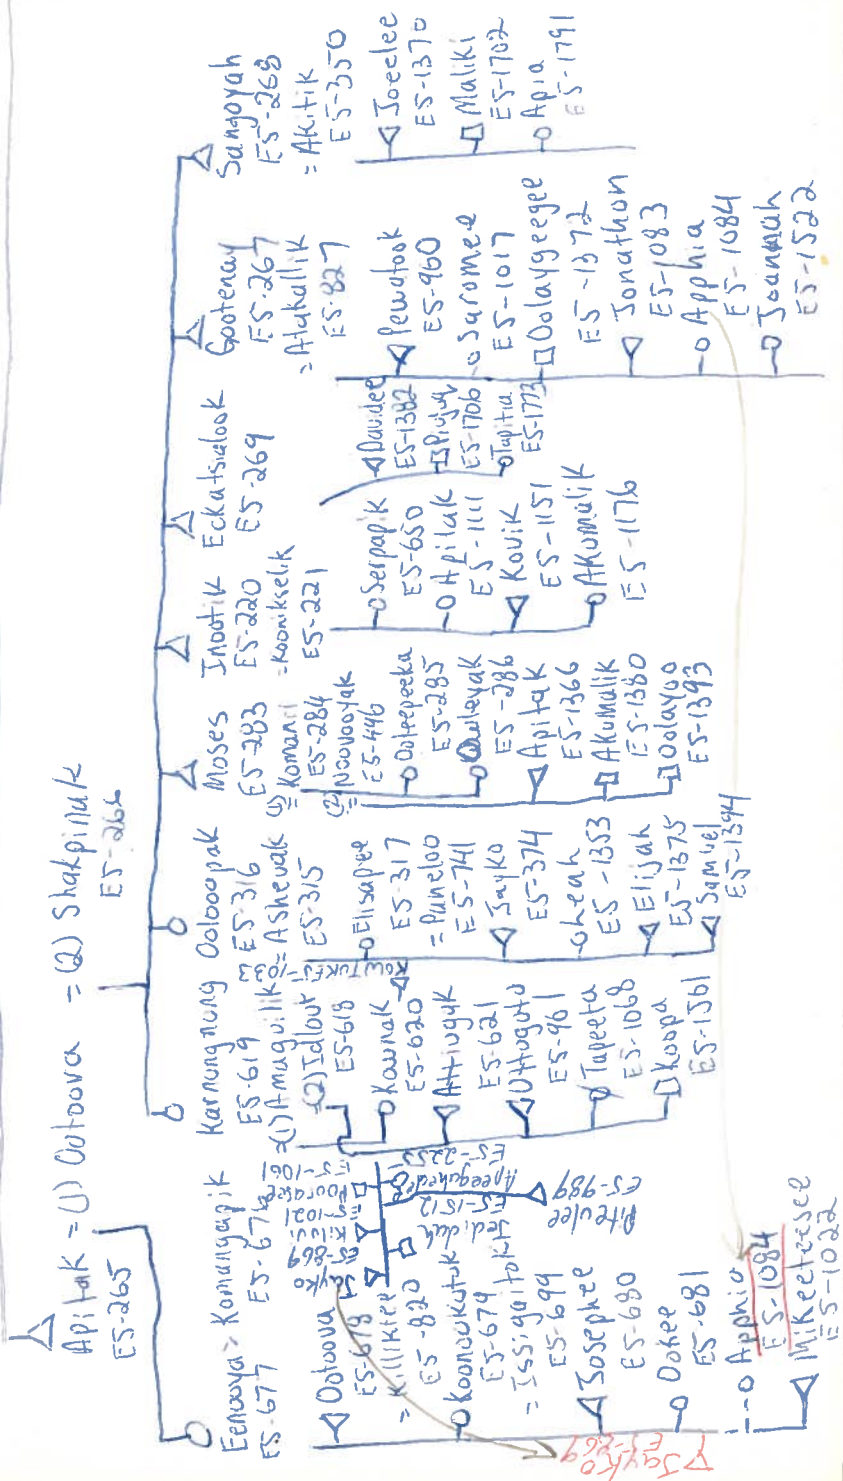 Apitak = (1) Ootoova = (2) Shakpinak
E5-265
E5-266
Eenooya = Komangapik
E5-677 E5-676
Ootoova
E5-678
= Killiktee
E5-820
Koonookutuk
E5-679
= Issigaitok
E5-699
Josephee
E5-680
Ookee
E5-681
Apphia
E5-1084
Mikeeteesee
E5-1022
Jayko
E5-869
Jayko
E5-869
Kilovi
E5-1021
E5-1061
Jedidah
E5-1512
E5-2253
Piteulee
E5-989
Karnungnung
E5-619
=(1) Amagoilik
=(2) Idlout
E5-618
Kownak
E5-620
Attiuguk
E5-621
Uttuguto
E5-961
Tapeeta
E5-1068
Koopa
E5-1561
Oolooopak
E5-316
= Ashevak
E5-315
Elisapee
E5-317
= Paneloo
E5-741
Jayko
E5-374
Leah
E5-1353
Elijah
E5-1375
Samuel
E5-1394
E5-1033
Moses
E5-283
(1) = Komanil
E5-284
(2) = Noovooyak
E5-446
Ooleepeeka
E5-285
E5-286
Apitak
E5-1366
Akumalik
E5-1380
Oolayoo
E5-1393
Inootik
E5-220
= Koonikselik
E5-221
Serpapik
E5-650
Apilak
E5-1111
Kovik
E5-1151
Akumalik
E5-1176
Eckatsialook
E5-269
Davidee
E5-1382
E5-1706
Tapitia
E5-1773
Gootenay
E5-267
= Atakallik
E5-827
Pewatook
E5-960
Saromee
E5-1017
Oolaygeegee
E5-1372
Jonathon
E5-1083
Apphia
E5-1084
Joannah
E5-1522
Sangoyah
E5-268
= Akitik
E5-350
Joeelee
E5-1370
Maliki
E5-1702
Apia
E5-1791